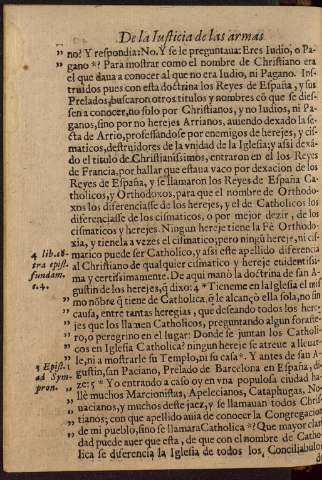 De la Iusticia de las armas
no? Y respondia: No. Y se le preguntaua: Eres Iudio, o Pa-
gano *? Para mostrar como el nombre de Christiano era
el que daua a conocer al que no era Iudio, ni Pagano. Ins-
truidos pues con esta doctrina los Reyes de España, y sus
Prelados, buscaron otros titulos y nombres cõ que se dies-
sen a conocer, no solo por Christianos, y no Iudios, ni Pa-
ganos, sino por no herejes Arrianos, auiendo dexado la se-
cta de Arrio, professandose por enemigos de herejes, y cis-
maticos, destruidores de la vnidad de la Iglesia; y assi dexã-
do el titulo de Christianissimos, entraron en el los Reyes
de Francia, por hallar que estaua vaco por dexacion de los
Reyes de España, y se llamaron los Reyes de España Ca-
tholicos, y Orthodoxos, para que el nombre de Orthodo-
xos los diferenciasse de los herejes, y el de Catholicos los
diferenciasse de los cismaticos, o por mejor dezir, de los
cismaticos y herejes. Ningun hereje tiene la Fè Orthodo-
xia, y tienela a vezes el cismatico; pero ningũ hereje, ni cis-
4 lib. cõ- matico puede ser Catholico, y assi este apellido diferencia
tra epist. al Christiano de qualquier cismatico y hereje euidentissi-
fundam. ma y certissimamente. De aqui manò la doctrina de san A-
c. 4. gustin de los herejes, q̃ dixo: 4 * Tieneme en la Iglesia el mis
" mo nõbre q̃ tiene de Catholica, q̃ le alcançò ella sola, no sin
" causa, entre tantas heregias, que deseando todos los here-
" jes que los llamen Catholicos, preguntando algun foraste-
" ro, o peregrino en el lugar: Donde se juntan los Catholi-
" cos en Iglesia Catholica? ningun hereje se atreue a licuar-
" le, ni a mostrarle su Templo, ni su casa *. Y antes de san A-
3 Epist. 1 gustin, san Paciano, Prelado de Barcelona en España, di-
ad Sym- ze: 5 * Yo entrando a caso oy en vna populosa ciudad ha-
pron. llè muchos Marcionistas, Apelecianos, Cataphugas, No-
" uacianos, y muchos deste jaez, y se llamauan todos Chris
" tianos; con que apellido auia de conocer la Congregacion
" de mi pueblo, sino se llamara Catholica *? Que mayor clari
dad puede auer que esta, de que con el nombre de Catho-
lica se diferencia la Iglesia de todos los Conciliabulos